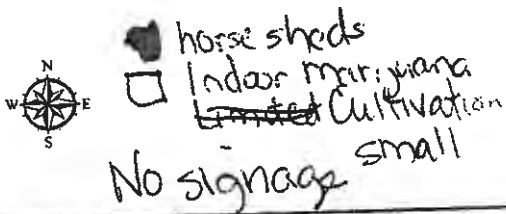 horse sheds
Indoor Marijuana
Limited Cultivation
small
No signage
N
W E
S